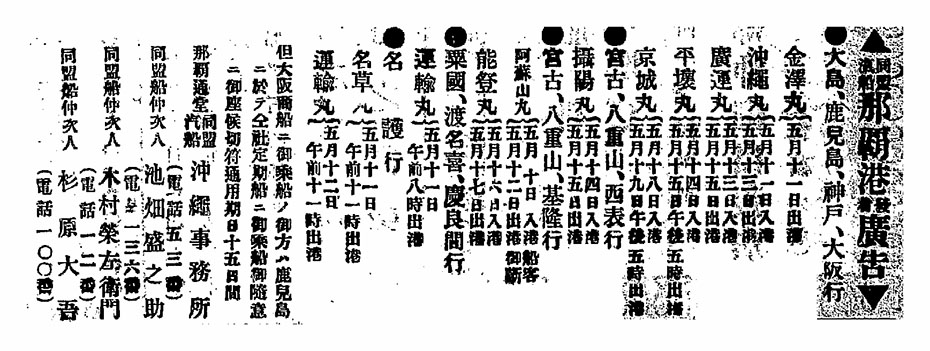 ▲同盟滊船那覇港發着廣告▼
●大島、鹿兒島、神戸、大阪行
金澤丸 五月十一日出港
沖繩丸 五月十一日入港 五月十三日出港
廣運丸 五月十三日入港 五月十五日出港
平壤丸 五月十四日入港 五月十五日午後五時出港
京城丸 五月十八日入港 五月十九日午後五時出港
●宮古、八重山、西表行
攝陽丸 五月十四日入港 五月十五日出港
●宮古、八重山、基隆行
阿蘇山丸 五月十日入港船客 五月十二日出港御斷
能登丸 五月十六日入港 五月十七日出港
●粟國、渡名喜、慶良間行
運輸丸 五月十一日 午前八時出港
●名護行
名草丸 五月十一日 午前十一時出港
運輸丸 五月十二日 午前十一時出港
但大阪商船ニ御乘船ノ御方ハ鹿兒島
ニ於テ仝社定期船ニ御乘船御隨意
ニ御座候切符通用期日十五日間
那覇通堂 同盟汽船 沖繩事務所
(電話五三番)
同盟船仲次人 池畑盛之助
(電話一三六番)
同盟船仲次人 木村榮左衛門
(電話一一二番)
同盟船仲次人 杉原大吾
(電話一〇〇番)